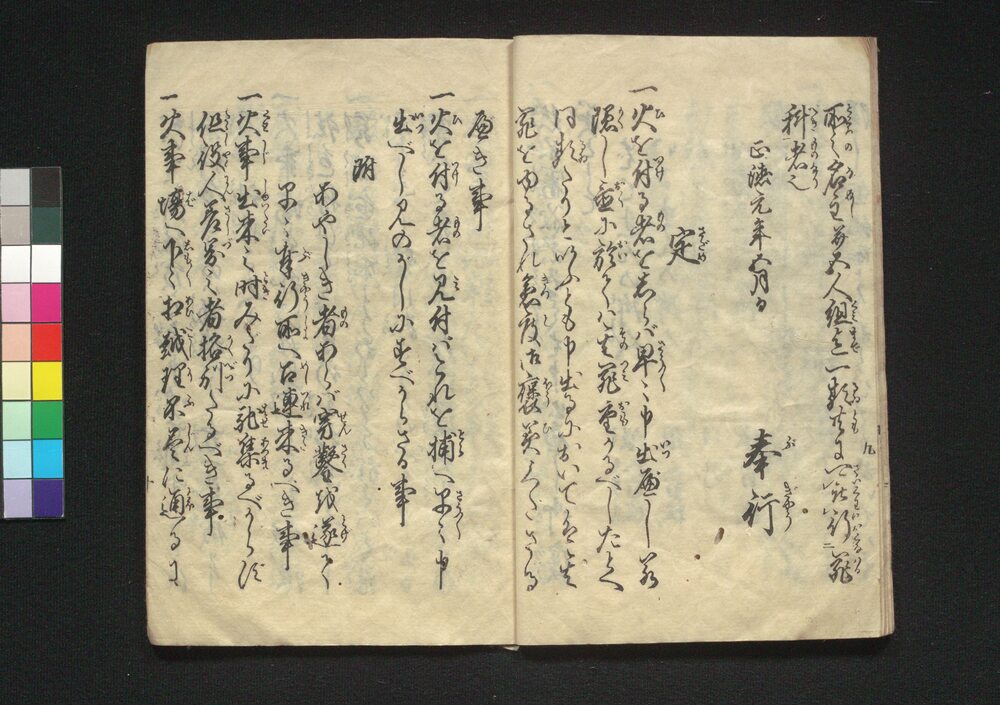 所之名主并五人組迄一類共に可被行罪
科者也
正徳元年五月日
奉行
定
一火を付る者をしらば早々申出べし若
隠し置に於ては其罪重かるべしたとへ
同類たりといふとも申出るにおいては其
罪をゆるされ急度御褒美くださる
べき事
一火を付る者を見付ばこれを捕へ早々申
出べし見のがしにすべからざる事
附
あやしき者あらば穿鑿を遂て
早々奉行所へ召連来るべき事
一火事出来之時みだりに馳集るべからず
但役人差図之者格別たるべき事
一火事場へ下々相越理不尽に通るに
九